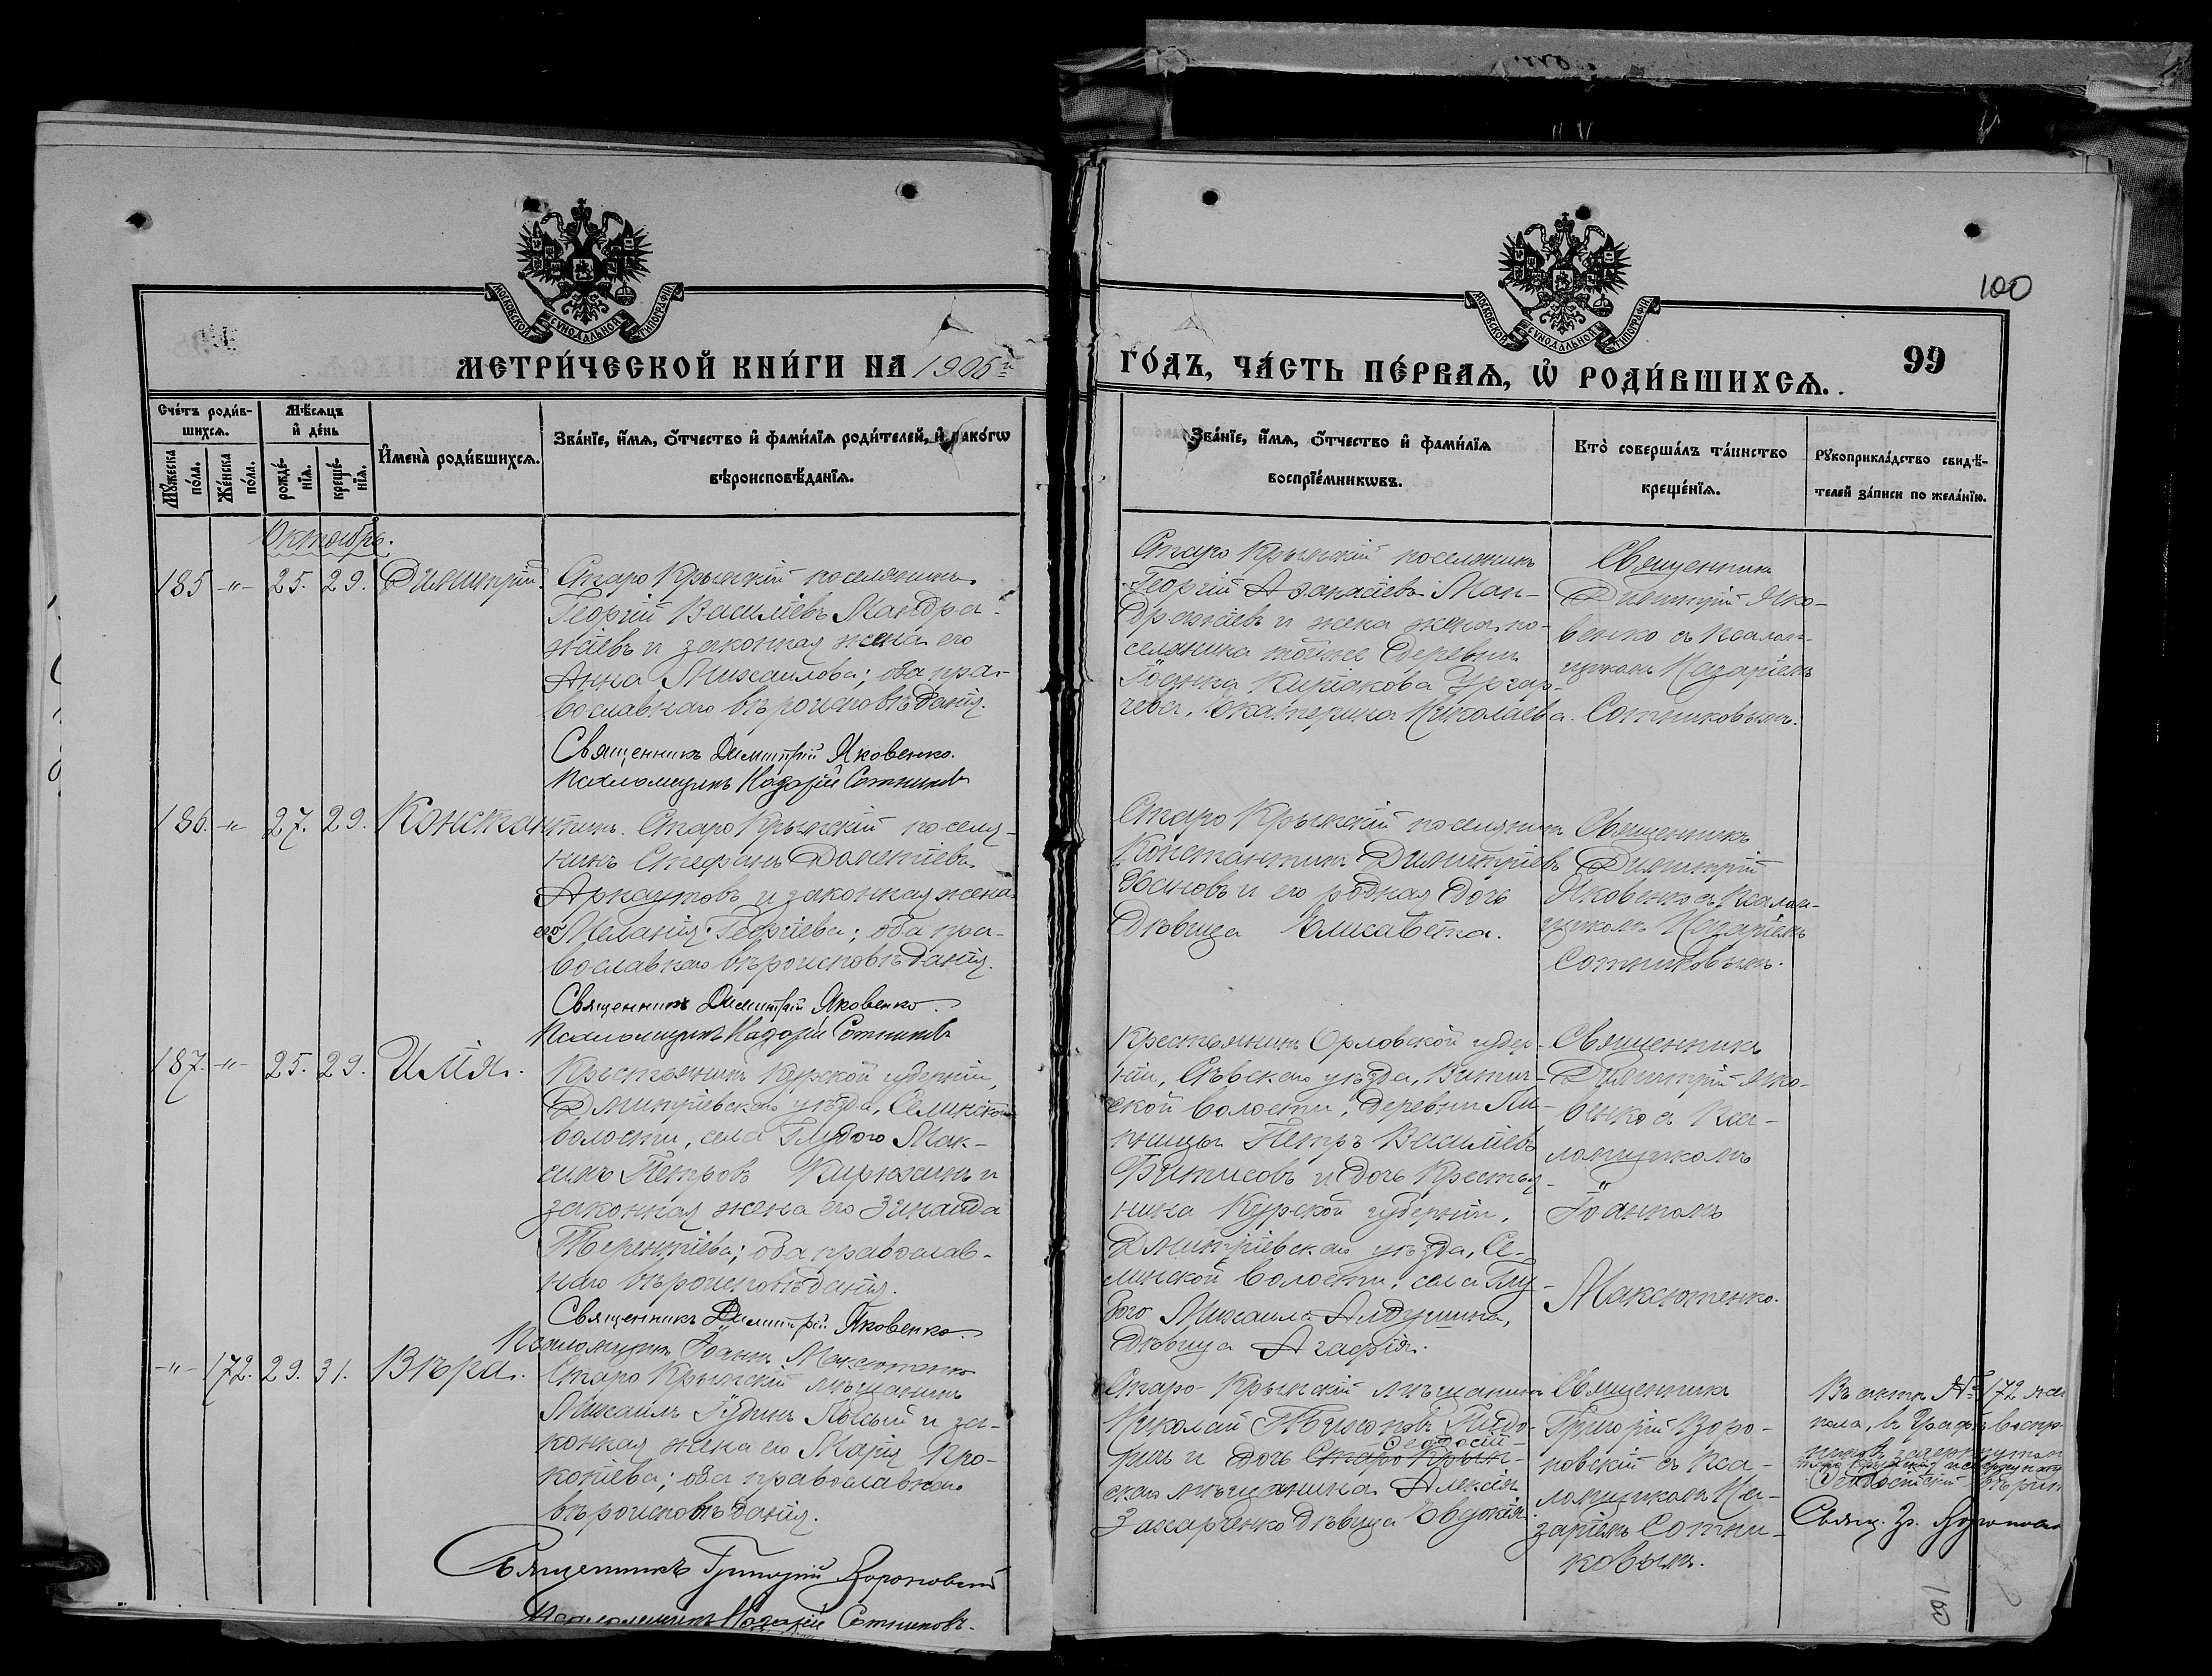 100
МОСКОВСКОЙ СУНОДАЛЬНОЙ ТИПОГРАФІИ
МОСКОВСКОЙ СУНОДАЛЬНОЙ ТИПОГРАФІИ
МЕТРИ́ЧЕСКОЙ КНИ́ГИ НА 1905й
ГО́ДЪ, ЧА́СТЬ ПЕ́РВАѦ, Ѡ҆ РОДИ́ВШИХСѦ.
99
Сче́тъ роди́в-
шихсѧ.
Мѣ́сѧцъ
и҆ де́нь
И҆мена̀ роди́вшихсѧ.
Зва́нїе, и҆́мѧ, ѻ҆́тчество и҆ фами́лїѧ роди́телей, и҆ како́гѡ
вѣроисповѣ́данїѧ.
Мꙋ́жеска
по́ла.
Же́нска
по́ла.
рожде́-
нїѧ.
креще́-
нїѧ.
Зва́нїе, и҆́мѧ, ѻ҆́тчество и҆ фами́лїѧ
воспрїе́мникѡвъ.
Кто̀ соверша́лъ та́инство
креще́нїѧ.
Рꙋкоприкла́дство свидѣ́-
телей за́писи по жела́нїю.
Октябрь.
185 -"- 25. 29. Димитрій.
Старо Крымскій поселянинъ
Георгій Васильевъ Мандра-
жіевъ и законная жена его
Анна Михаилова; оба пра-
вославнаго вѣроисповѣданія.
Священникъ Димитрій Яковенко.
Псаломщикъ Назарій Сотниковъ
Старо Крымскій поселянинъ
Георгій Аѳанасіевъ Ман-
дражіевъ и жена жена по-
селянина тойже деревни
Іоанна Киріакова
Екатерина Николаева.
Священникъ
Димитрій Яко-
венко съ псалом-
щикомъ Назаріемъ
Сотниковымъ.
186. -"- 27. 29. Константинъ.
Старо Крымскій поселя-
нинъ Стефанъ Доментіевъ
Аркаутовъ и законная жена
его Меланія Георгіева; оба пра-
вославнаго вѣроисповѣданія.
Священникъ Димитрій Яковенко
Псаломщикъ Назарій Сотниковъ
Старо Крымскій поселянинъ
Константинъ Димитріевъ
и его родная дочь
дѣвица Елисавета.
Священникъ
Димитрій
Яковенко съ псалом-
щикомъ Назаріемъ
Сотниковымъ.
187. -"- 25. 29. Илія.
Крестьянинъ Курской губерніи,
Дмитріевскаго уѣзда,
волости, села Мак-
симъ Петровъ Кирюхинъ и
законная жена его Зинаида
Терентіева; оба православ-
наго вѣроисповѣданія.
Священникъ Димитрій Яковенко.
Псаломщикъ Іоаннъ Максютенко
Крестьянинъ Орловской губер-
ніи, Сѣвскаго уѣзда,
ской волости, деревни
Петръ Васильевъ
Фитисовъ и дочь крестья-
нина Курской губерніи,
Дмитріевскаго уѣзда, Се-
линской волости, села
Михаила Алдушина,
дѣвица Агафія.
Священникъ
Димитрій Яко-
венко съ пса-
ломщикомъ
Іоанномъ
Максютенко.
-"- 172. 29. 31. Вѣра.
Старо Крымскій мѣщанинъ
Михаилъ Лысый и за-
конная жена его Марія Про-
копіева; оба православнаго
вѣроисповѣданія.
Священникъ Григорій Вороновскій
Псаломщикъ Назарій Сотниковъ.
Старо-Крымскій мѣщанинъ
Николай
и дочь Старо-Крым-
Ѳеодосій-
скаго мѣщанина Алексія
Захарченко дѣвица Евдокія.
Священникъ
Григорій Воро-
новскій съ пса-
ломщикомъ На-
заріемъ Сотни-
ковымъ.
Въ актѣ № 172 жен
пола, въ графѣ
Свящ. Гр.
100